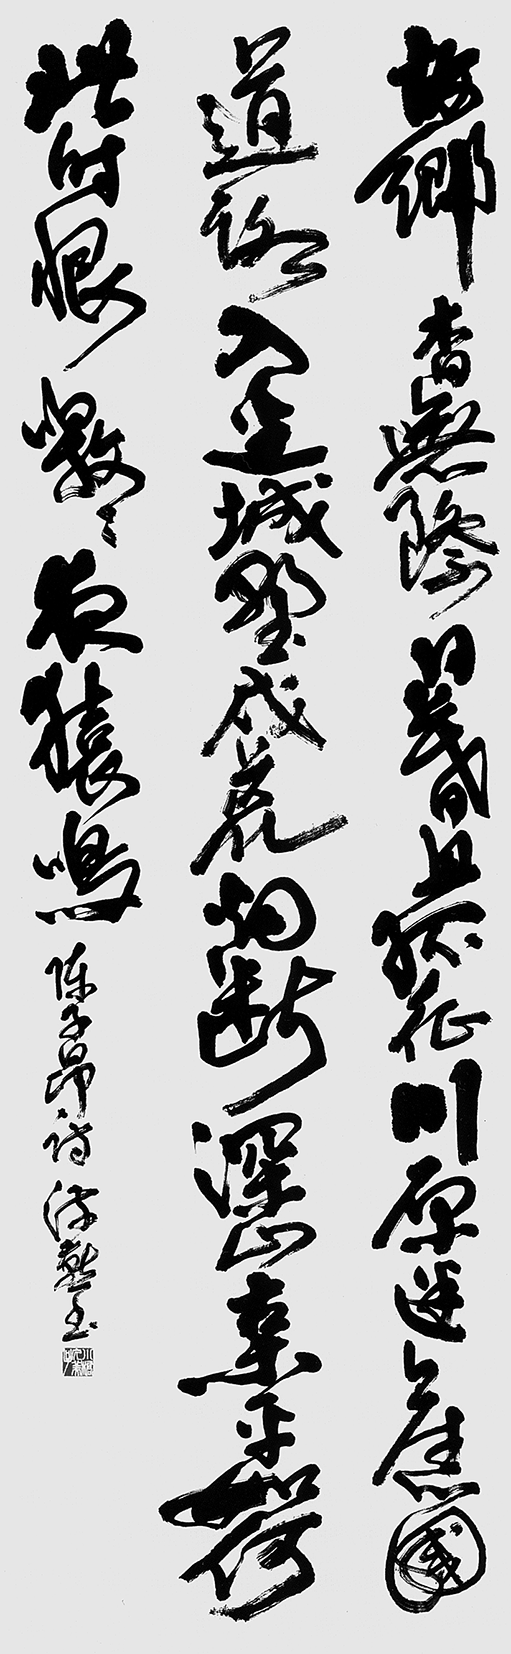 故鄉杳無際日暮且孤征川原迷舊國
道路入邊城野戍荒烟断深山古木平如何
此时恨噭々夜猿鳴 陈子昂诗